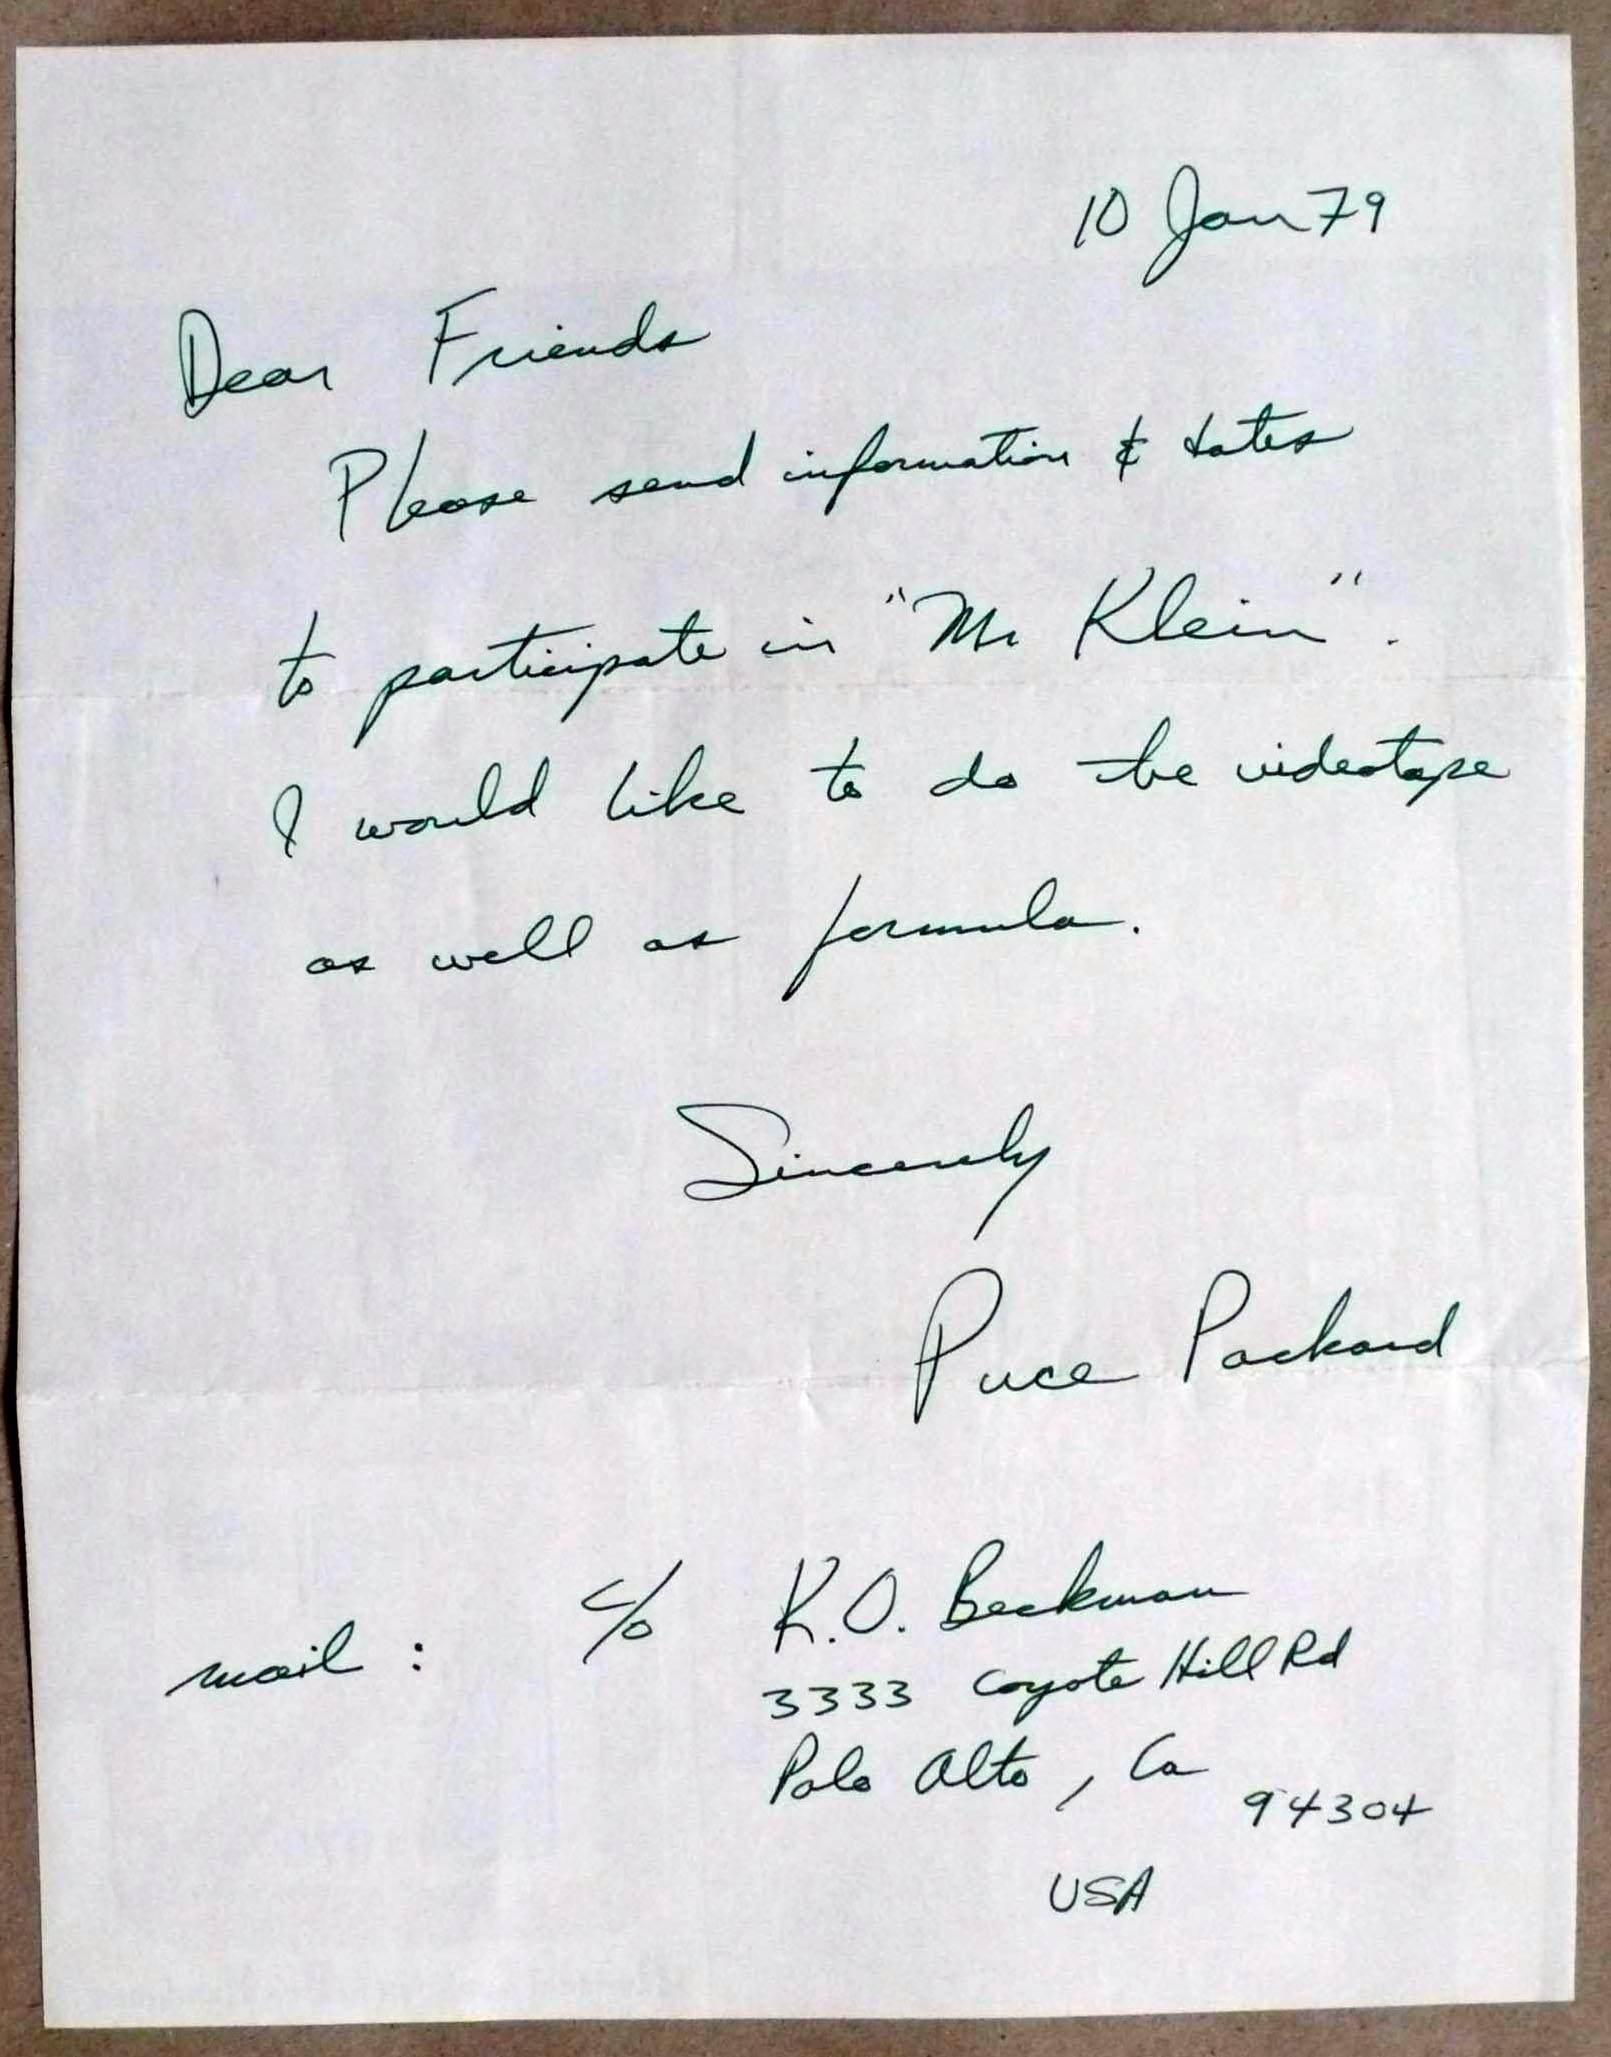 10 Jan 79
Dear Friends
Please send information & dates
to participate in "Mr Klein".
I would like to do the videotape
as well as formula.
Sincerely
Puce Packard
mail : c/o K.O. Beckman
3333 Coyote Hill Rd
Palo Alto, Ca
94304
USA